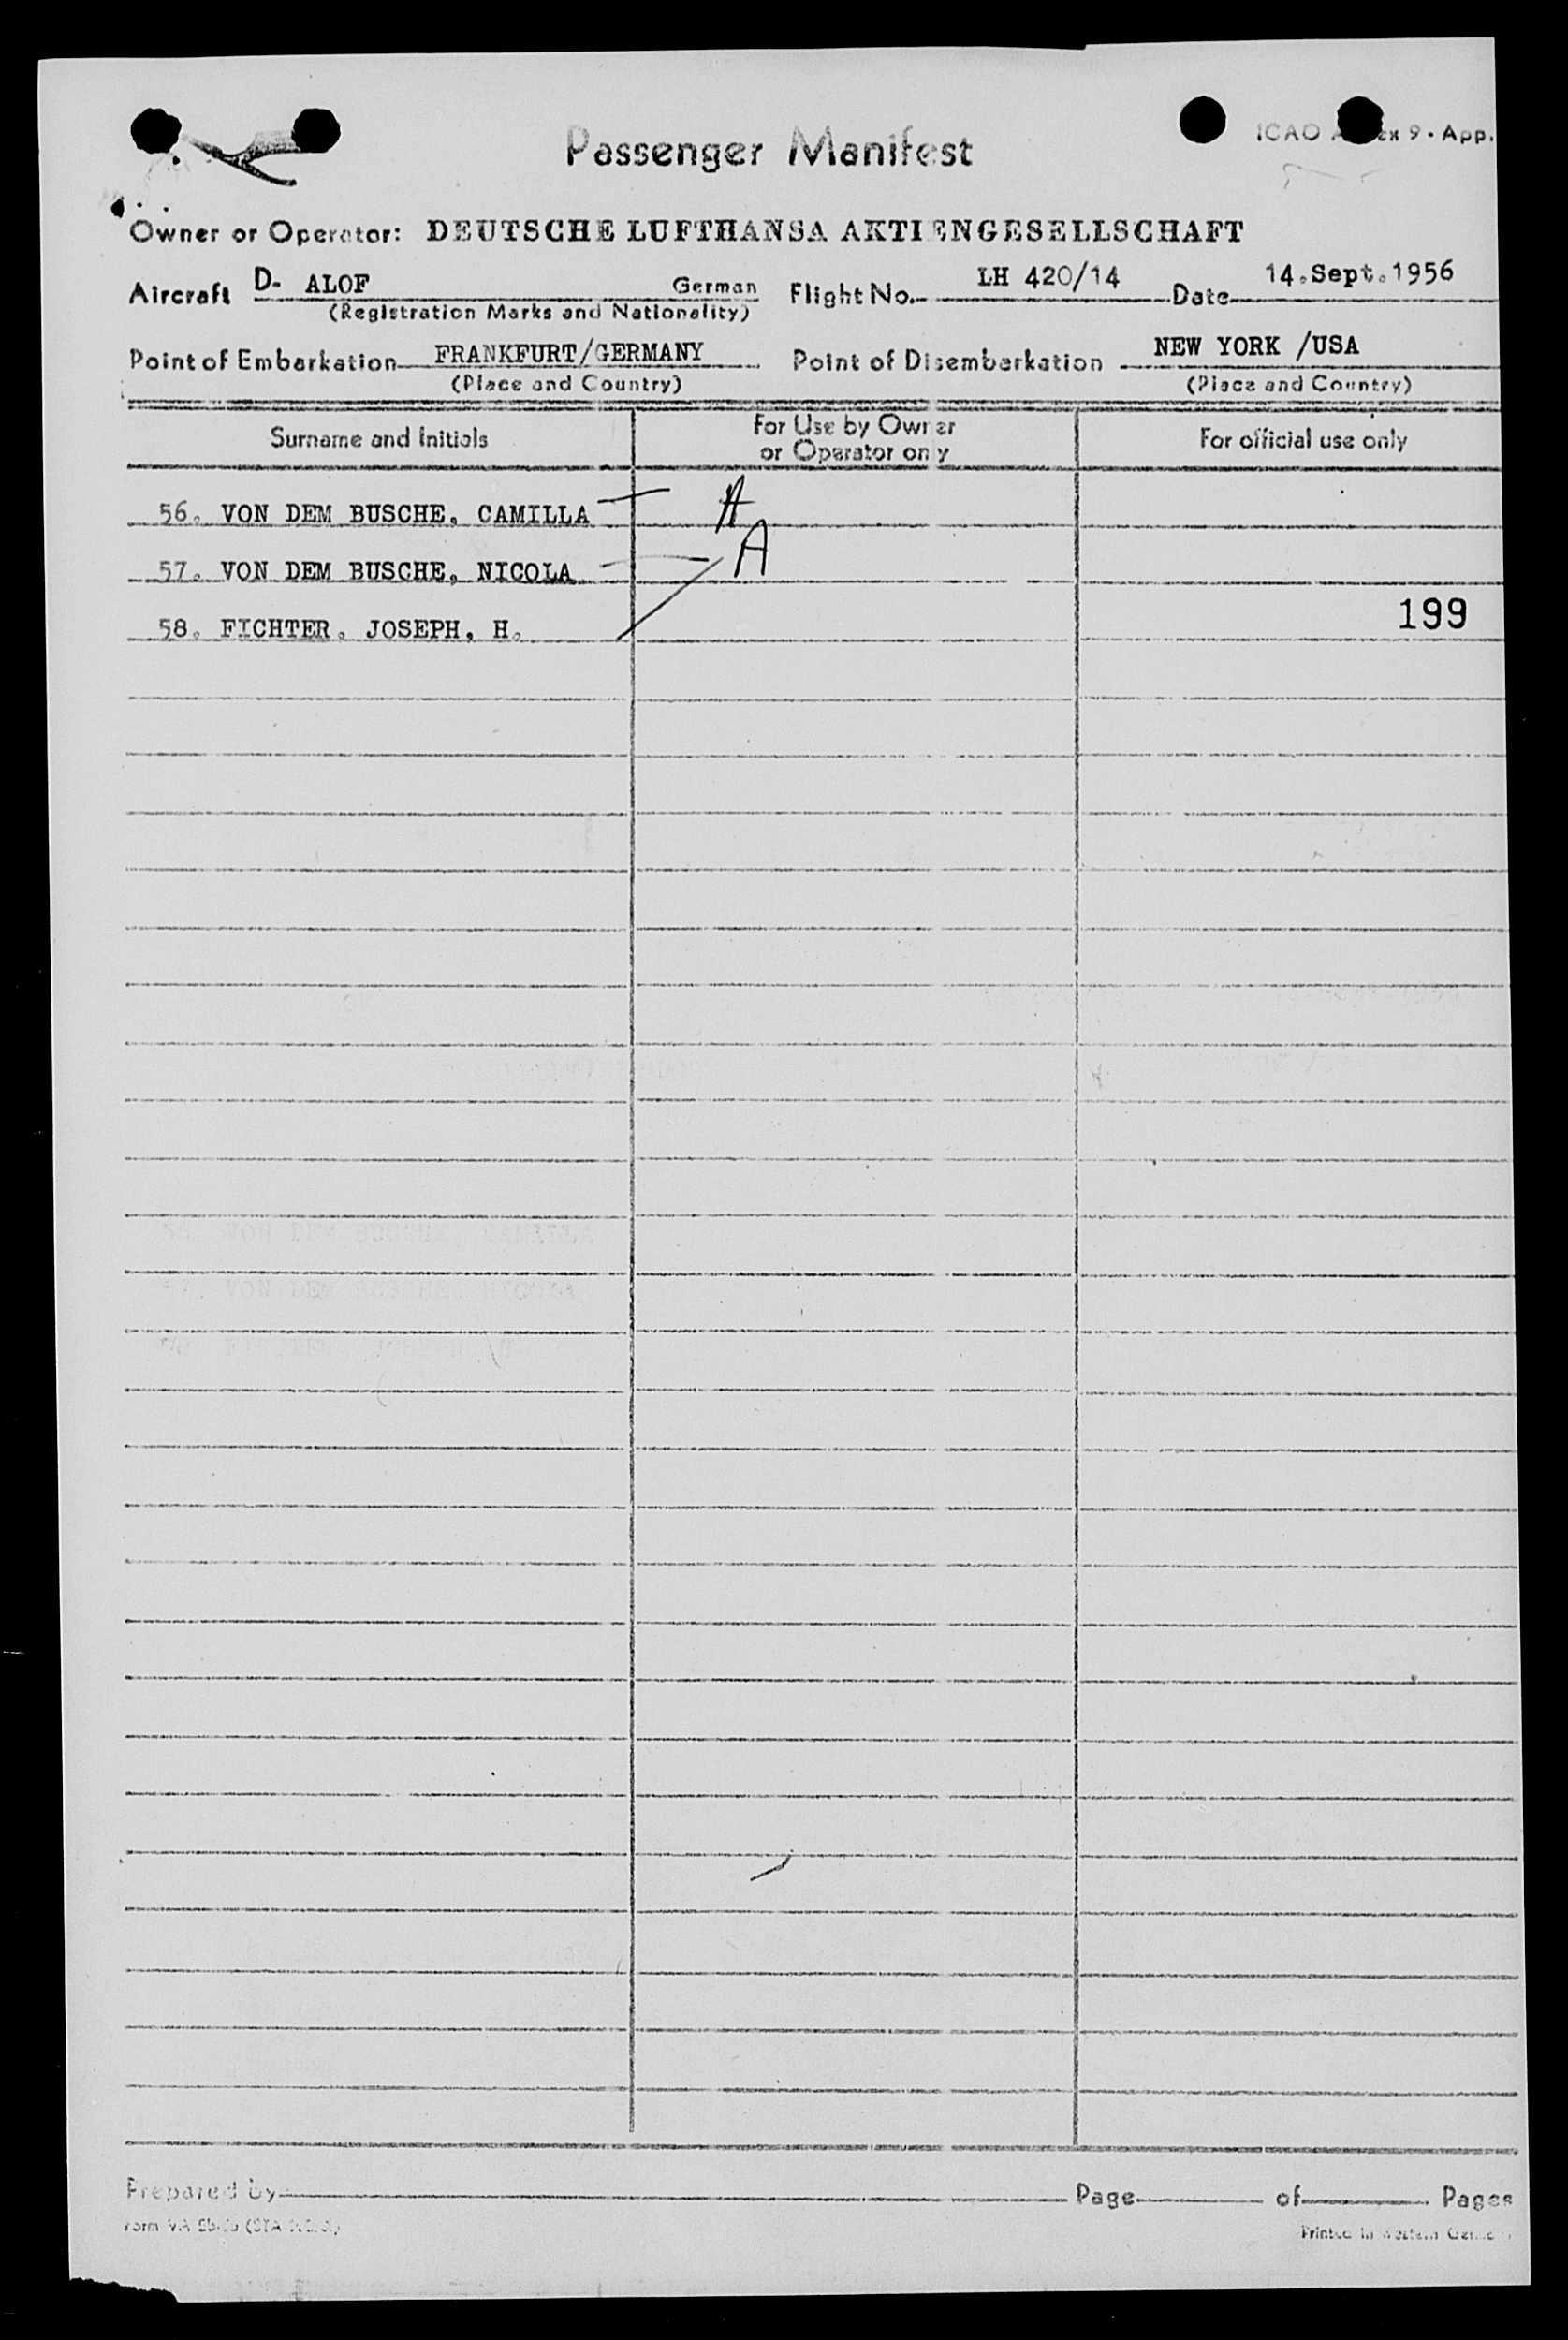 Passenger Manifest
ICAO 9 - App.
Owner or Operator: DEUTSCHE LUFTHANSA AKTIENGESELLSCHAFT
Aircraft D- ALOF German Flight No. LH 420/14 Date 14.Sept.1956
(Registration Marks and Nationality)
Point of Embarkation FRANKFURT/GERMANY Point of Disembarkation NEW YORK /USA
(Place and Country) (Place and Country)
Surname and Initials For Use by Owner or Operator only For official use only
56. VON DEM BUSCHE, CAMILLA A
57. VON DEM BUSCHE, NICOLA A
58. FICHTER, JOSEPH, H. 199
Prepared by Page of Pages
Form
Printed in Western